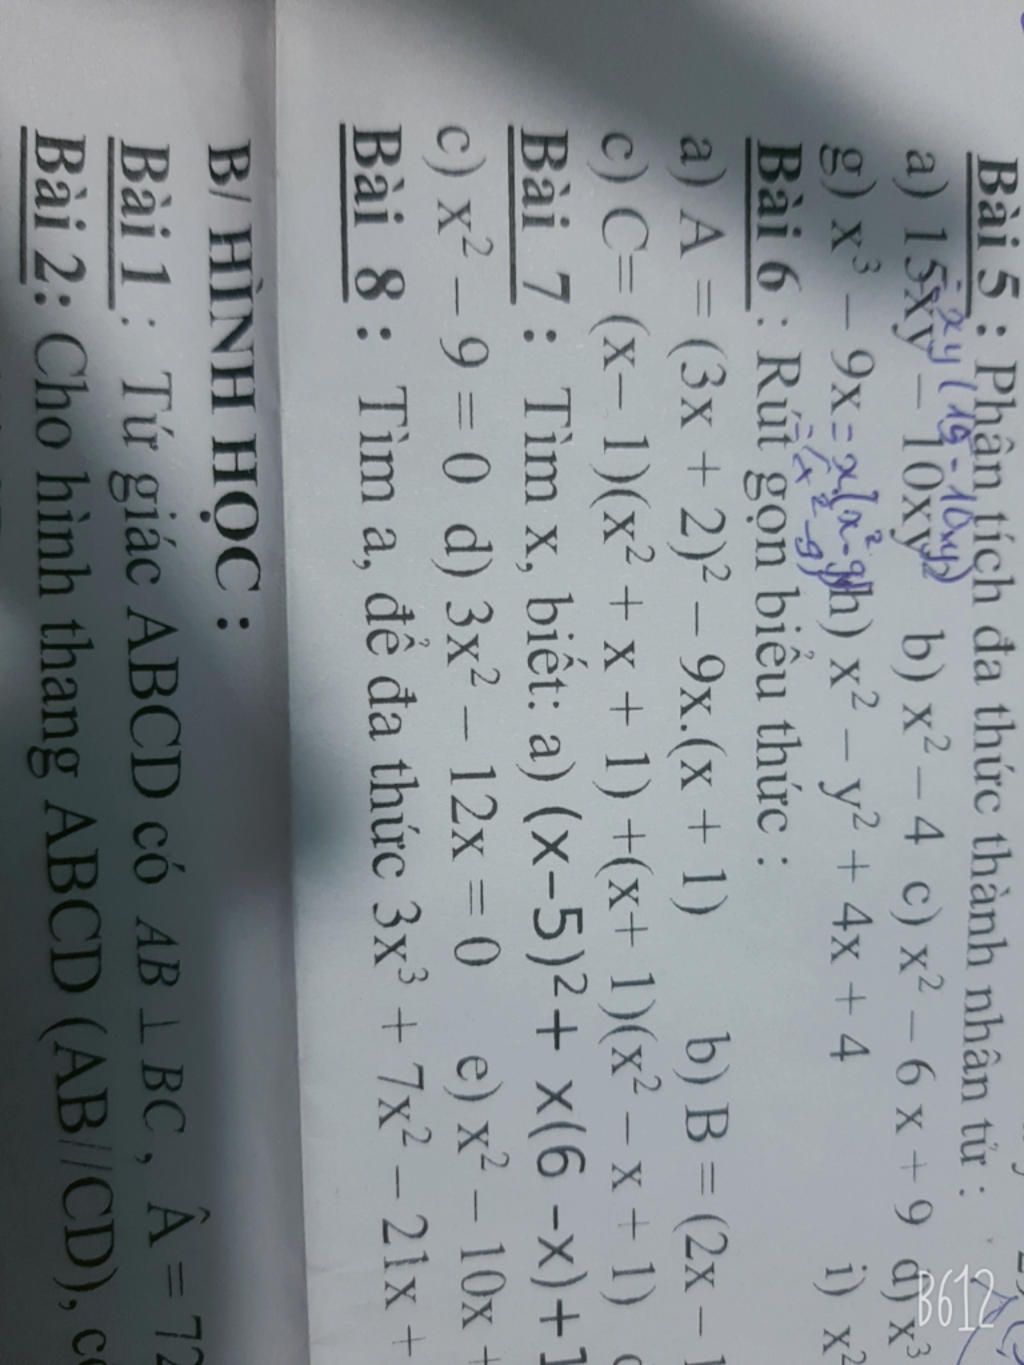 Bài 5 : Phân tích đa thức thành nhân tử :
= xy (15 - 10xy)
a) 15xy – 10xy² b) x² – 4 c) x² – 6 x + 9 d) x³
g) x³ – 9x = x(x² - 9) h) x² – y² + 4x + 4 i) x²
= (x² - 9)
Bài 6 : Rút gọn biểu thức :
a) A = (3x + 2)² – 9x.(x + 1) b) B = (2x – 1
c) C= (x– 1)(x² + x + 1) +(x+ 1)(x² – x + 1)
Bài 7 : Tìm x, biết: a) (x–5)²+ x(6 –x)+1
c) x² – 9 = 0 d) 3x² – 12x = 0 e) x² – 10x +
Bài 8 : Tìm a, để đa thức 3x³ + 7x² – 21x +
B/ HÌNH HỌC :
Bài 1 : Tứ giác ABCD có AB ⊥ BC , Â = 72
Bài 2: Cho hình thang ABCD (AB//CD),
B612